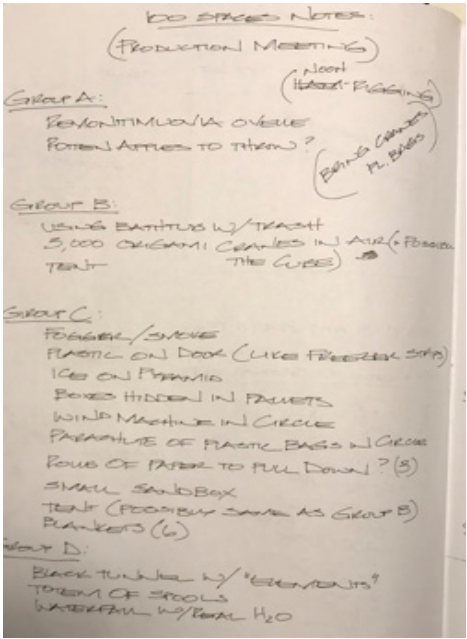 100 SPACES NOTES:
(PRODUCTION MEETING)
NOON
-RIGGING)
GROUP A:
ROTTEN APPLES TO THROW?
(BRING CRANES
PL. BAGS)
GROUP B:
USING BATHTUB W/ TRASH
3,000 ORIGAMI CRANES IN AIR (+ POSSIBLY
TENT THE CUBE)
GROUP C:
FOGGER/SMOKE
PLASTIC ON DOOR (LIKE FREEZER STRIPS)
ICE ON PYRAMID
BOXES HIDDEN IN PALLETS
WIND MACHINE IN CIRCLE
PARACHUTE OF PLASTIC BAGS IN CIRCLE
ROLLS OF PAPER TO PULL DOWN? (3)
SMALL SANDBOX
TENT (POSSIBLY SAME AS GROUP B)
BLANKETS (6)
GROUP D:
BLACK TUNNEL W/ "ELEMENTS"
TOTEM OF SPOOLS
WATERFALL W/REAL H2O